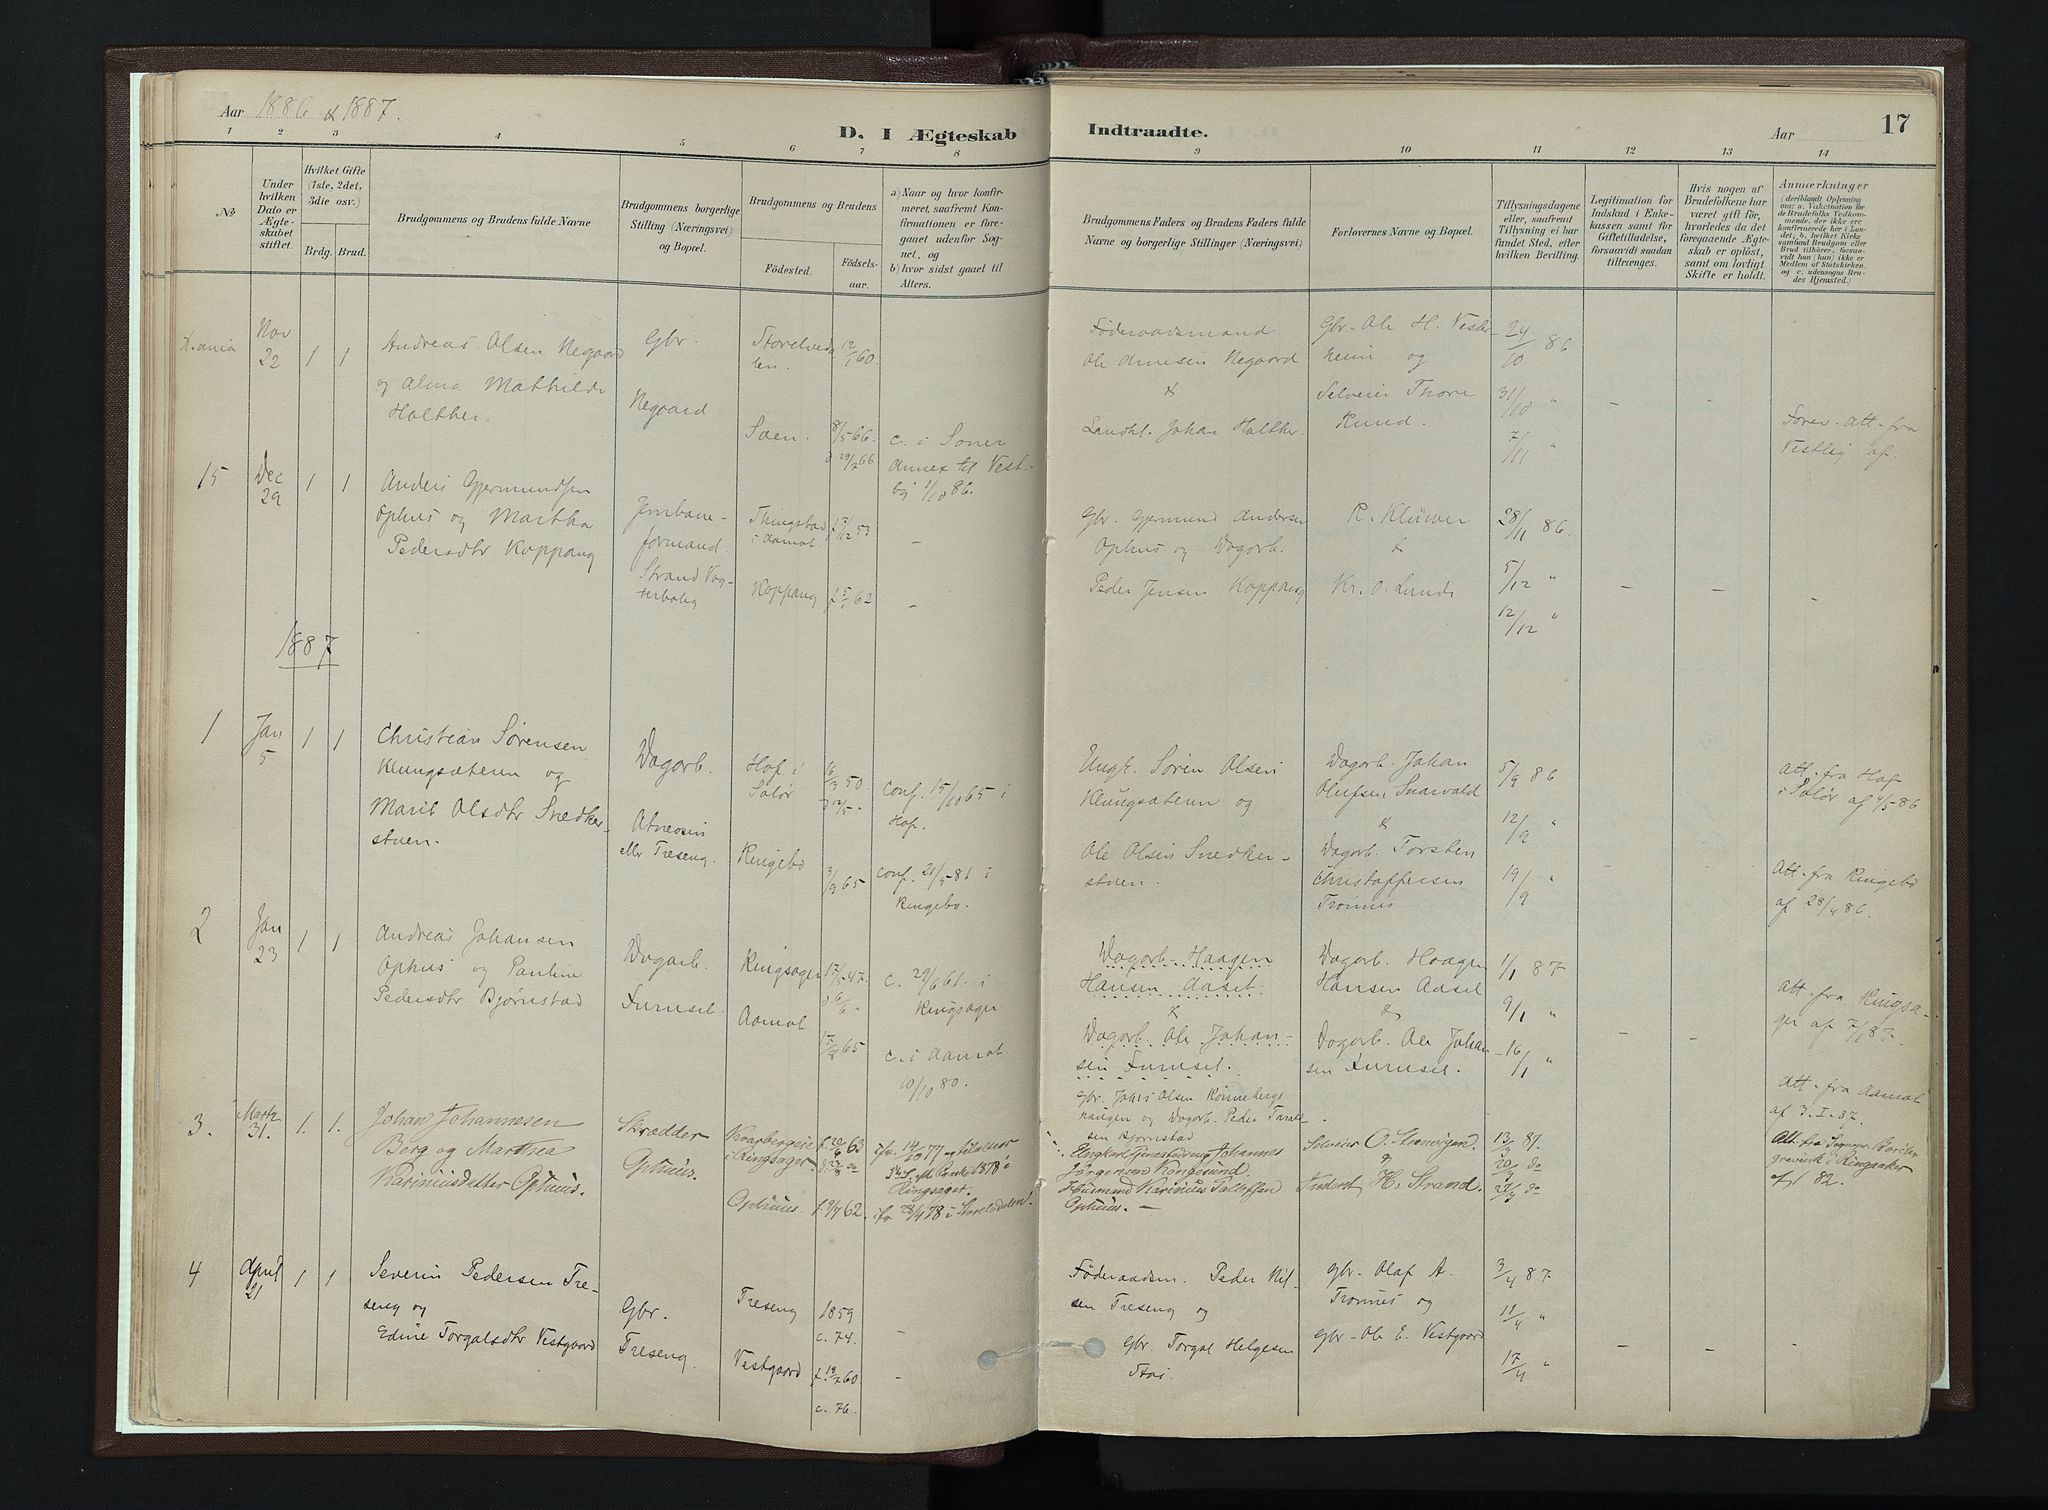 Aar 1886 & 1887.
D. I Ægteskab
Indtraadte.
Aar
17
1 2 3 4 5 6 7 8 9 10 11 12 13 14
№
Under hvilken Dato er Ægteskabet stiftet.
Hvilket Gifte (1ste, 2det, 3die osv.)
Brdg. Brud.
Brudgommens og Brudens fulde Navne
Brudgommens borgerlige Stilling (Næringsvei) og Bopæl.
Brudgommens og Brudens
Fødested.
Fødselsaar.
a) Naar og hvor konfirmeret, saafremt Konfirmationen er foregaaet udenfor Sognet, og
b) hvor sidst gaaet til Alters.
Brudgommens Faders og Brudens Faders fulde Navne og borgerlige Stillinger (Næringsvei)
Forlovernes Navne og Bopæl.
Tillysningsdagene eller, saafremt Tillysning ei har fundet Sted, efter hvilken Bevilling.
Legitimation for Indskud i Enkekassen samt for Giftetilladelse, forsaavidt saadan tiltrænges.
Hvis nogen af Brudefolkene har været gift før, hvorledes da det foregaaende Ægteskab er opløst, samt om lovligt Skifte er holdt.
Anmærkninger (deriblandt Oplysning om: a. Vakcination for de Brudefolks Vedkommende, der ikke ere konfirmerede her i Landet; b. hvilket Kirkesamfund Brudgom eller Brud tilhører, forsaavidt han (hun) ikke er Medlem af Statskirken, og c. udensogns Brudes Hjemsted.)
Nov 22 1 1
Andreas Olsen Negaard
og Alma Mathilde
Halther.
Gbr.
Negaard
Storelvedalen.
12/1 60.
Soen.
8/5 66.
d 29/7 66
c. i Soner
annex til Vestby 1/10 86.
Föderaadsmand
Ole Arnesen Negaard
&
Landhl. Johan Halther.
Gbr. Ole H. Vestheim og
Selveier Thore
Rund.
24/10 86
31/10 "
7/11 "
Att. fra
Vestby af
15 Dec 29 1 1
Anders Gjermundsen
Ophus og Martha
Pedersdtr Koppang
Jernbaneformand.
Strand Vogterbolig
Thingstad i Aamot.
f 7/12 53
Koppang
f. 5/1 62
Gbr. Gjermund Andersen
Ophus og Dagarb.
Peder Jensen Koppang
R. Klüwer
&
Kr. O. Lunde
28/11 86.
5/12 "
12/12 "
1887
1 Jan 5 1 1
Christian Sørensen
Klungsæteren og
Marit Olsdtr Snedkerstuen.
Dagarb.
Atneosen
eller Treseng.
Hof i Solør
16/3 50.
d 12/5 "
Ringebo
3/9 65
conf. 15/10 65 i
Hof.
conf. 21/5 81 i
Ringebo.
Ungk. Sören Olsen
Klungsæteren og
Ole Olsen Snedkerstuen.
Dagarb. Johan
Olufsen Snarvald
&
Dagarb. Torsten
Christoffersen
Trønnes
5/9 86
12/9 "
19/9 "
Att. fra Hof
i Solør af 4/5 86
Att. fra Ringebo
af 28/4 86.
2 Jan 23 1 1
Andreas Johansen
Ophus og Pauline
Pedersdtr Bjørnstad
Dagarb.
Furuset.
Ringsager
17/5 47.
d 6/6 "
Aamot
65
c. 29/6 61. i
Ringsager
c. i Aamot.
10/10 80.
Dagarb. Haagen
Hansen Aaset.
&
Dagarb. Ole Johansen Furuset.
Gbr. Johs Olsen Rønnebergshaugen og Dagarb. Peder Taralsen Bjørnstad
Dagarb. Haagen
Hansen Aaset
&
Dagarb. Ole Johansen Furuset.
1/1 87
9/1 "
16/1 "
Att. fra Ringsager af 7/1 87.
Att. fra Aamot
af 3-1-87.
3. Marts 31. 1. 1.
Johan Johannesen
Berg og Marthea
Karinusdatter Ophuus.
Skrædder
Ophuus.
i Ringsager.
63
Ophuus.
f. 9/7 62.
Ringsager.
28/4 78 i Storelvdalen.
Johannes
Husmand Karinus Tollefsen
Ophuus. —
Selveier
H. Strand.
13/3 87.
20/3 do
27/3 do
82.
4 April 21 1 1
Severin Pedersen Treseng og
Edine Torgalsdtr Vestgaard
Gbr.
Treseng.
Treseng
1859
c. 74.
Vestgaard
f. 19/7 60
c. 76.
Föderaadsm. Peder Nilsen Treseng og
Gbr. Torgal Helgesen
Stai.
Gbr. Olaf A.
Trønnes og
Gbr. Ole E. Vestgaard
3/4 87.
11/4 "
17/4 "